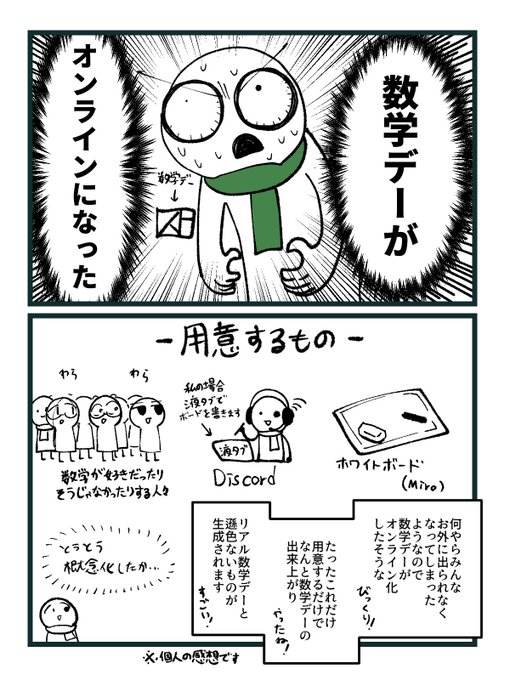 数学デーが
オンラインになった
数学デー
-用意するもの-
わら
わら
数学が好きだったり
そうじゃなかったりする人々
私の場合
液タブで
ボードを書きます
液タブ
Discord
ホワイトボード
(Miro)
何やらみんな
お外に出られなく
なってしまった
ようなので
数学デーが
オンライン化
したそうな
びっくり!
たったこれだけ
用意するだけで
なんと数学デーの
出来上がり
やったね!
リアル数学デーと
遜色ないものが
生成されます
すごい!
とうとう
概念化したか…
※個人の感想です